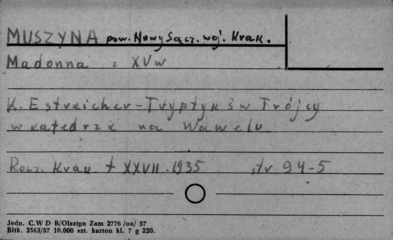 MUSZYNA pow. Nowy Sącz. woj. Krak.
Madonna z XVw
K. Estreicher - Tryptyk św Trójcy
w katedrze na Wawelu
Rocz. Krak t XXVII. 1935 str 94-5
Jedn. C.W D-B/Olsztyn Zam 2776 /on/ 57
Bltk. 2563/57 10.000 szt. karton kl. 7 g 220.